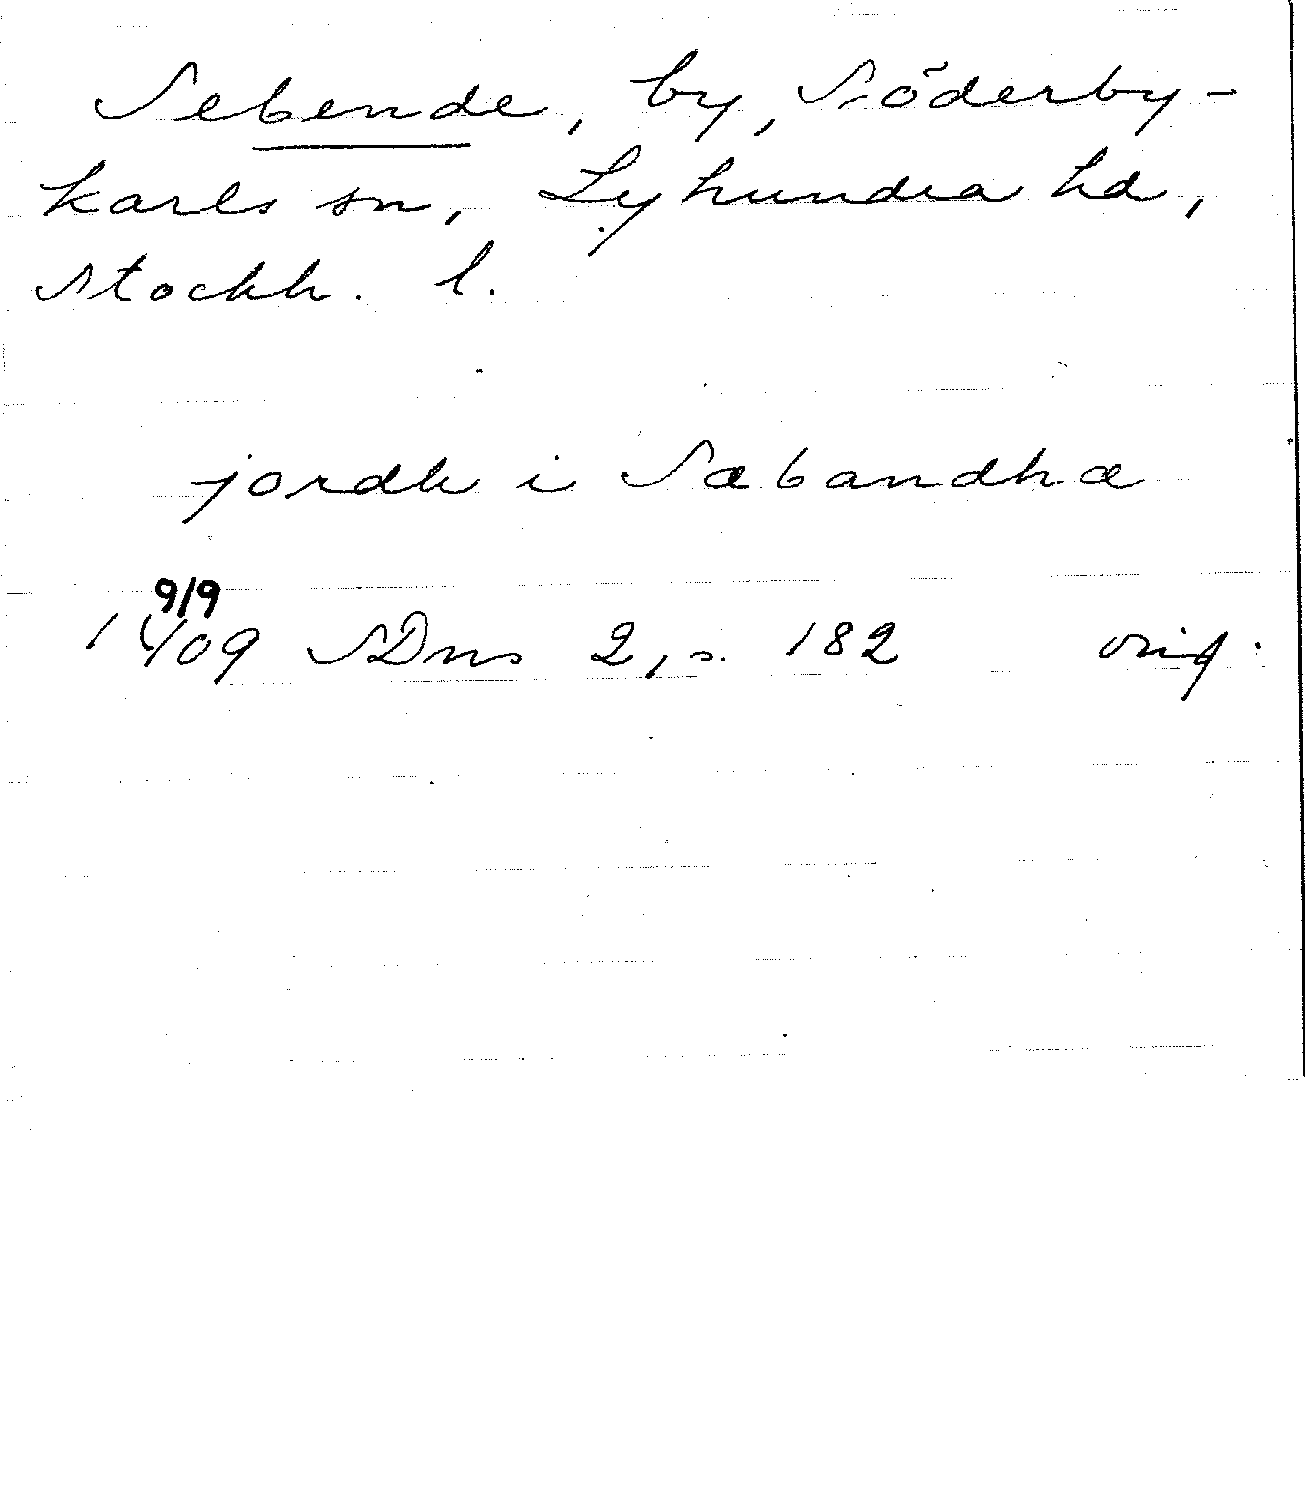 Sebende, by, Söderby-
karls sn, Lyhundra hd,
Stockh. l.
jordh i Sæbandhæ
9/9
1409 SDns 2, s. 182 orig.